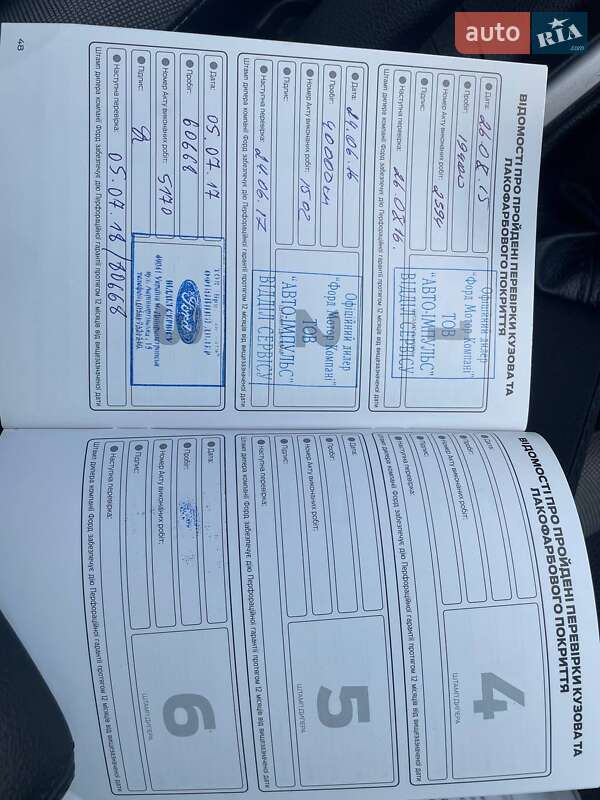 auto RIA.com
ВІДОМОСТІ ПРО ПРОЙДЕНІ ПЕРЕВІРКИ КУЗОВА ТА
ЛАКОФАРБОВОГО ПОКРИТТЯ
Дата: 26.08.15
Пробіг:
Номер Акту виконаних робіт:
Підпис:
Наступна перевірка: 26.08.16.
Офіційний дилер
"Форд Мотор Компані"
ТОВ
"АВТО-ІМПУЛЬС"
ВІДДІЛ СЕРВІСУ
Штамп дилера компанії Форд забезпечує дію Перфораційної гарантії протягом 12 місяців від вищезазначеної дати
Дата: 24.06.16
Пробіг: 40000
Номер Акту виконаних робіт: 1502
Підпис:
Наступна перевірка: 24.06.17
Офіційний дилер
"Форд Мотор Компані"
ТОВ
"АВТО-ІМПУЛЬС"
ВІДДІЛ СЕРВІСУ
Штамп дилера компанії Форд забезпечує дію Перфораційної гарантії протягом 12 місяців від вищезазначеної дати
Дата: 05.07.17
Пробіг: 60668
Номер Акту виконаних робіт: 5170
Підпис:
Наступна перевірка: 05.07.18/80668
ОФІЦІЙНИЙ ДИЛЕР
Ford
ВІДДІЛ СЕРВІСУ
Штамп дилера компанії Форд забезпечує дію Перфораційної гарантії протягом 12 місяців від вищезазначеної дати
48
ВІДОМОСТІ ПРО ПРОЙДЕНІ ПЕРЕВІРКИ КУЗОВА ТА
ЛАКОФАРБОВОГО ПОКРИТТЯ
Дата:
Пробіг:
Номер Акту виконаних робіт:
Підпис:
Наступна перевірка:
4
ШТАМП ДИЛЕРА
Штамп дилера компанії Форд забезпечує дію Перфораційної гарантії протягом 12 місяців від вищезазначеної дати
Дата:
Пробіг:
Номер Акту виконаних робіт:
Підпис:
Наступна перевірка:
5
ШТАМП ДИЛЕРА
Штамп дилера компанії Форд забезпечує дію Перфораційної гарантії протягом 12 місяців від вищезазначеної дати
Дата:
Пробіг:
Номер Акту виконаних робіт:
Підпис:
Наступна перевірка:
6
ШТАМП ДИЛЕРА
Штамп дилера компанії Форд забезпечує дію Перфораційної гарантії протягом 12 місяців від вищезазначеної дати